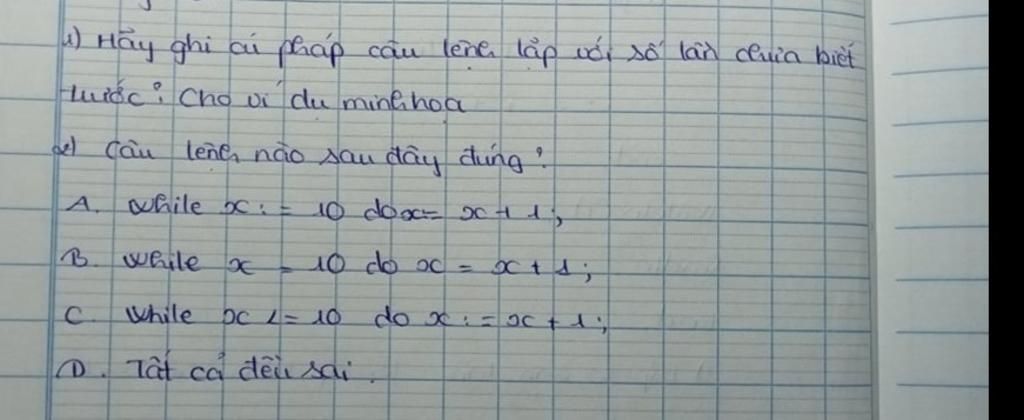 1) Hãy ghi cú pháp câu lệnh lặp với số lần chưa biết
trước? Cho ví dụ minh họa
2) Câu lệnh nào sau đây đúng?
A. While x := 10 do x = x + 1;
B. While x = 10 do x = x + 1;
C. While x <= 10 do x := x + 1;
D. Tất cả đều sai.